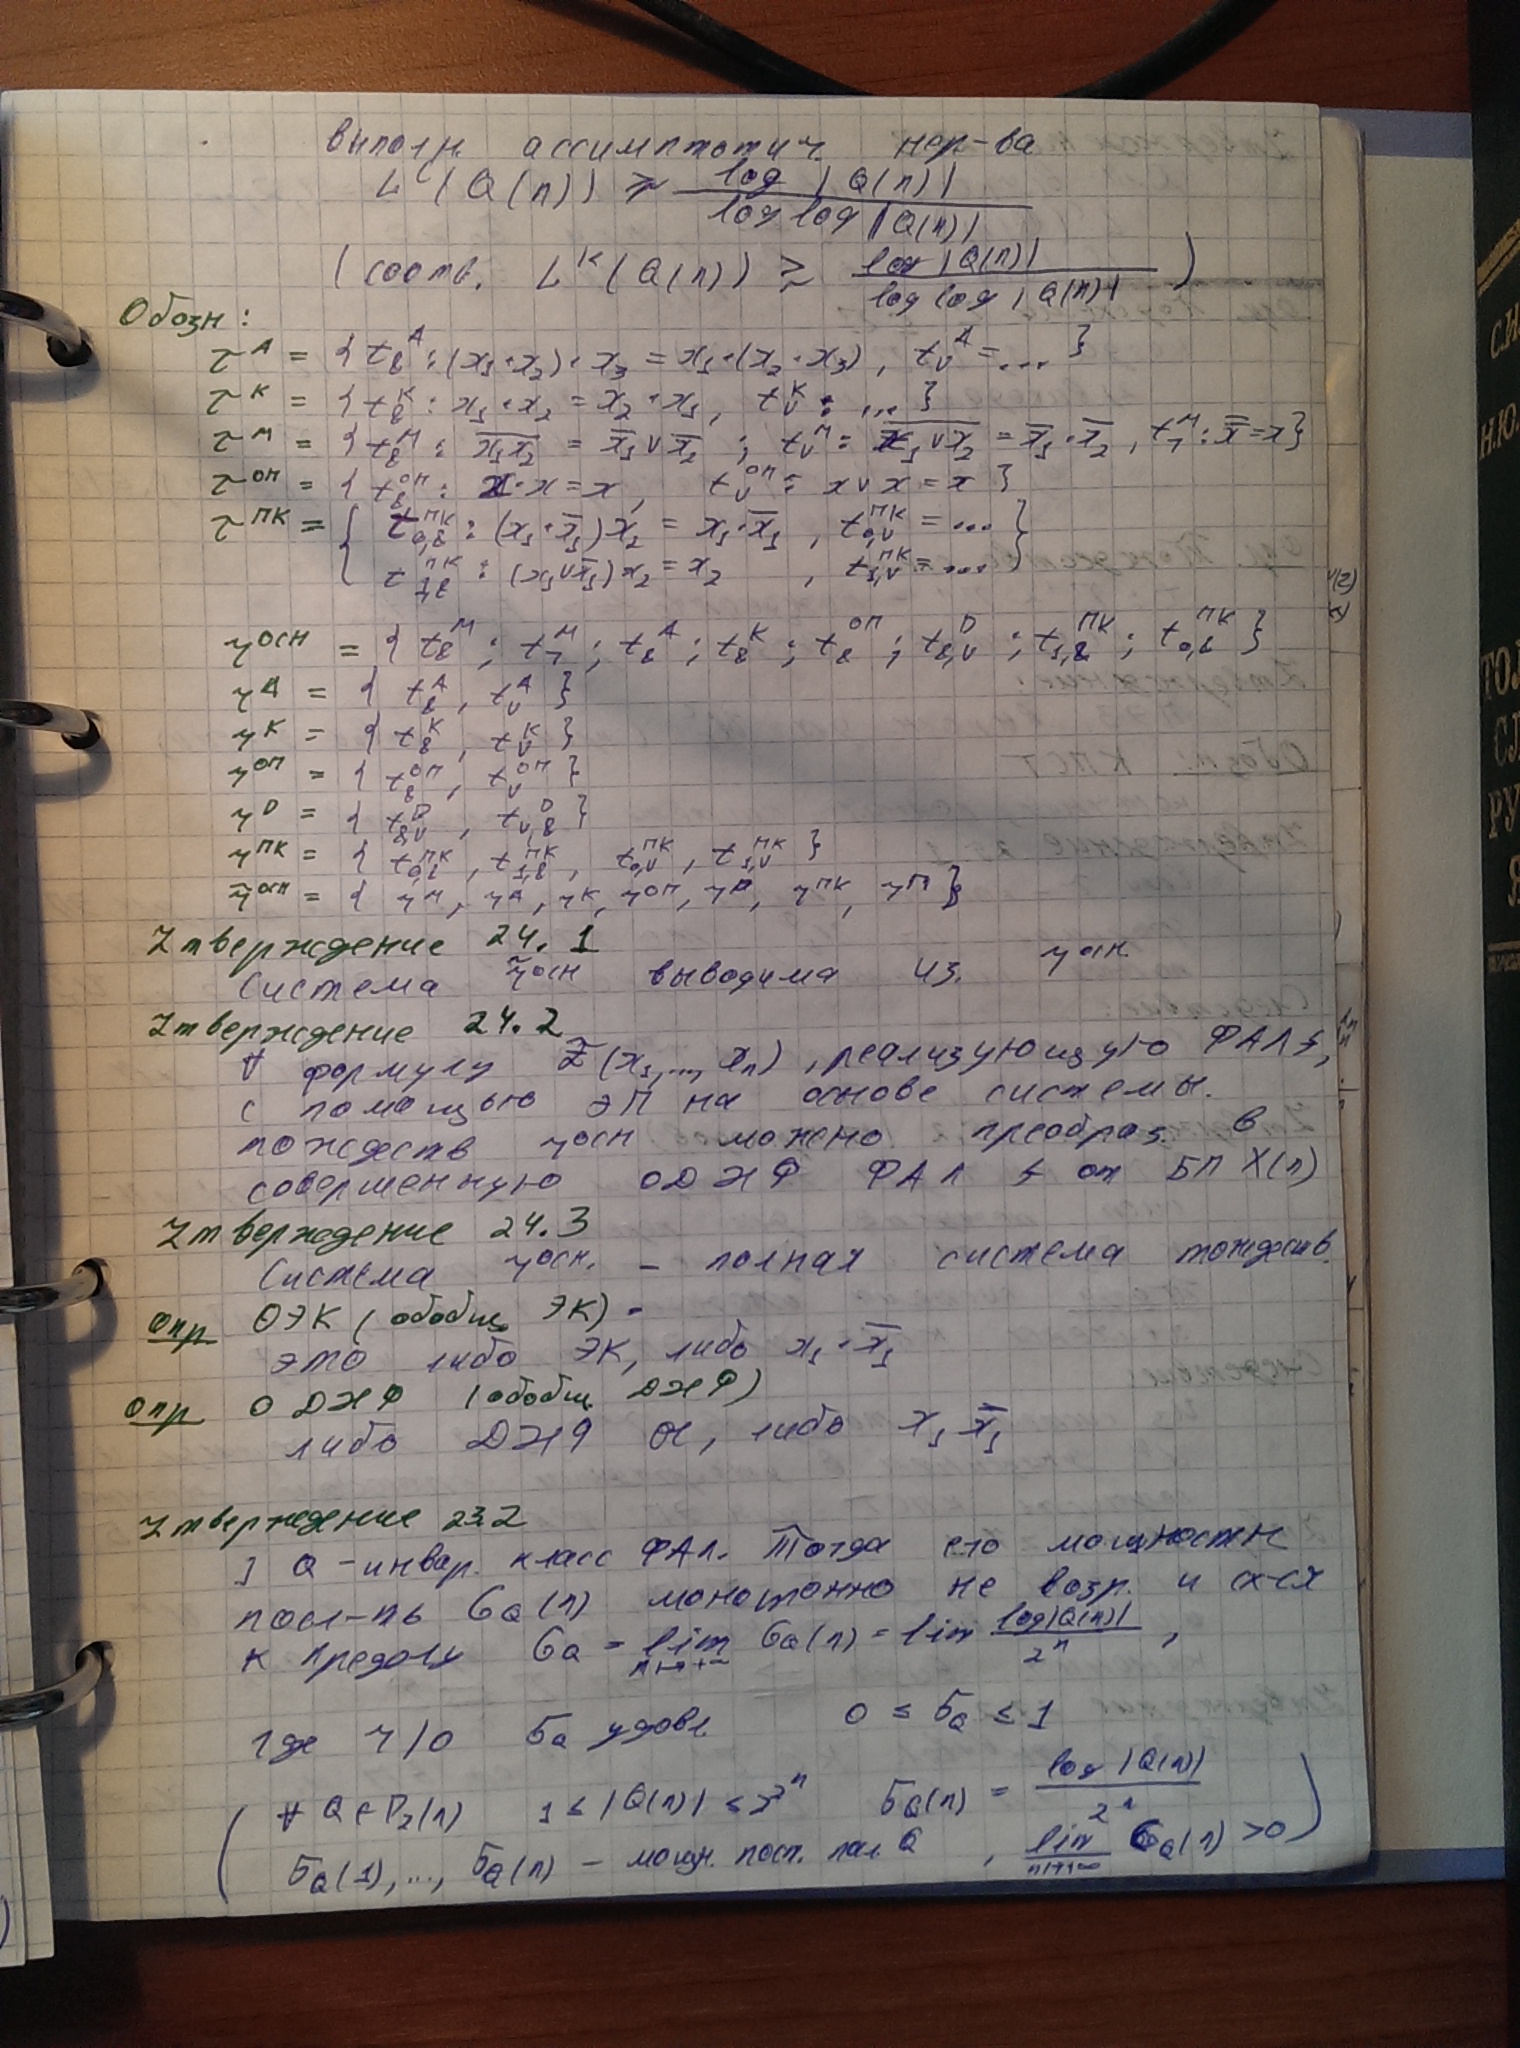 выполн. ассимптотич. нер-ва
L^C(Q(n)) ≥ log |Q(n)| / log log |Q(n)|
(соотв. L^K(Q(n)) ≳ log |Q(n)| / log log |Q(n)|)
Обозн:
τ^A = { t_&^A : (x₁·x₂)·x₃ = x₁·(x₂·x₃), t_∨^A = ... }
τ^K = { t_&^K : x₁·x₂ = x₂·x₁, t_∨^K : ... }
τ^M = { t_&^M : \overline{x₁x₂} = x̄₁ ∨ x̄₂ ; t_∨^M : \overline{x₁ ∨ x₂} = x̄₁·x̄₂, t_¬^M : x̿ = x }
τ^ОП = { t_&^ОП : x·x = x, t_∨^ОП : x ∨ x = x }
τ^ПК = { t_{0,&}^ПК : (x₁·x̄₁)x₂ = x₁·x̄₁, t_{0,∨}^ПК = ... }
t_{1,&}^ПК : (x₁∨x̄₁)x₂ = x₂, t_{1,∨}^ПК = ...
τ^осн = { t_&^M ; t_¬^M ; t_&^A ; t_&^K ; t_&^ОП ; t_{&,∨}^D ; t_{1,&}^ПК ; t_{0,&}^ПК }
τ^A = { t_&^A, t_∨^A }
τ^K = { t_&^K, t_∨^K }
τ^ОП = { t_&^ОП, t_∨^ОП }
τ^D = { t_{&,∨}^D, t_{∨,&}^D }
τ^ПК = { t_{0,&}^ПК, t_{1,&}^ПК, t_{0,∨}^ПК, t_{1,∨}^ПК }
τ̃^осн = { τ^M, τ^A, τ^K, τ^ОП, τ^D, τ^ПК, τ^П }
Утверждение 24.1
Система τ̃^осн выводима из τ^осн
Утверждение 24.2
∀ формулу (x₁,...,xₙ), реализующую ФАЛ f,
с помощью ЭП на основе системы
тождеств τ^осн можно преобраз. в
совершенную ОДНФ ФАЛ f от БП X(n)
Утверждение 24.3
Система τ^осн. – полная система тождеств.
Опр ОЭК (обобщ. ЭК) -
это либо ЭК, либо x₁·x̄₁
Опр ОДНФ (обобщ. ДНФ)
либо ДНФ, либо x₁x̄₁
Утверждение 23.2
] Q - инвар. класс ФАЛ. Тогда его мощностн
посл-ть σ_Q(n) монотонно не возр. и сх-ся
к пределу σ_Q = lim_{n→+∞} σ_Q(n) = lim log|Q(n)| / 2^n,
где σ_Q удовл 0 ≤ σ_Q ≤ 1
(∀ Q ∈ P₂(n) 1 ≤ |Q(n)| ≤ 2^{2^n} σ_Q(n) = log |Q(n)| / 2^n
σ_Q(1), ..., σ_Q(n) – мощн. посл. Q, lim_{n→+∞} σ_Q(n) > 0)
С.И.
Н.Ю.
ТОЛ
СЛ
РУ
Я